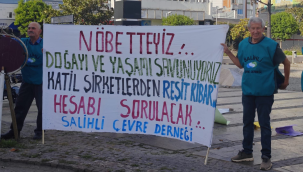 NÖBETTEYİZ!..
DOĞAYI VE YAŞAMI SAVUNUYORUZ
KATİL ŞİRKETLERDEN REŞİT KİBAR'I
HESABI SORULACAK..
SALİHLİ ÇEVRE DERNEĞİ